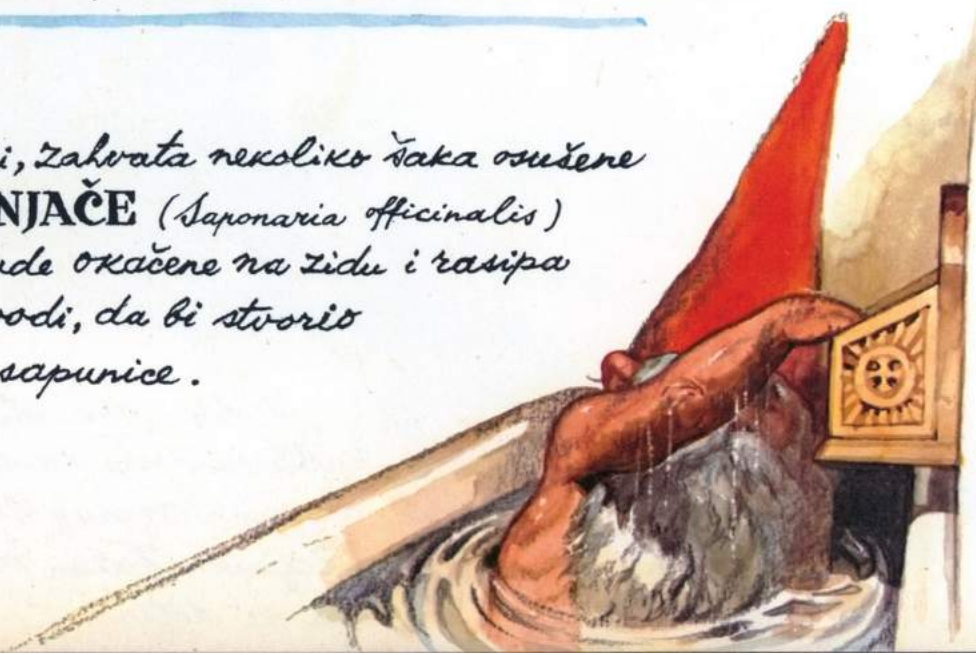 i, zahvata nekoliko šaka osušene
NJAČE (Saponaria officinalis)
ude okačene na zidu i rasipa
vodi, da bi stvorio
sapunice.